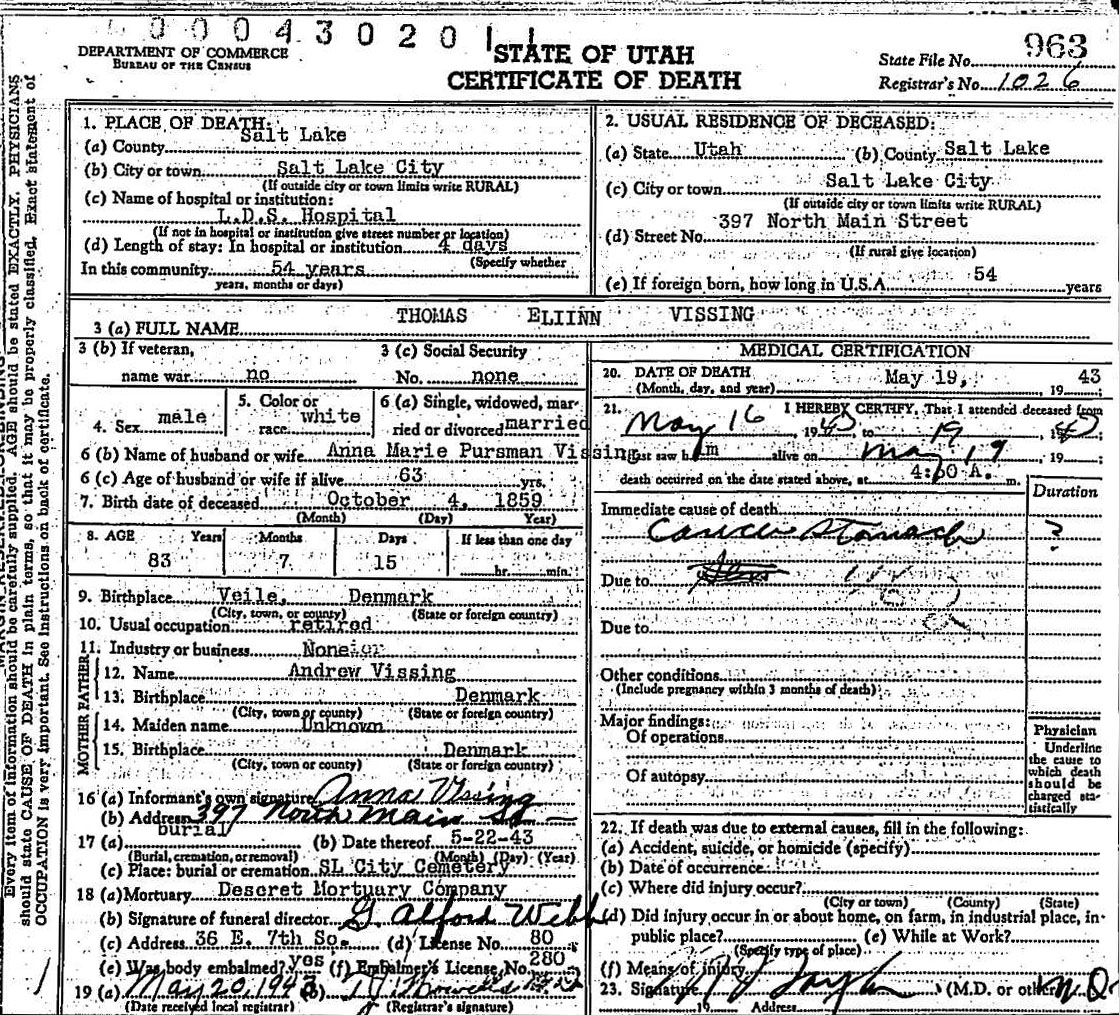 00043020
DEPARTMENT OF COMMERCE
BUREAU OF THE CENSUS
STATE OF UTAH
CERTIFICATE OF DEATH
State File No. 963
Registrar's No. 1026
Every item of information should be carefully supplied. AGE should be stated EXACTLY. PHYSICIANS
should state CAUSE OF DEATH in plain terms, so that it may be properly classified. Exact statement of
OCCUPATION is very important. See instructions on back of certificate.
1. PLACE OF DEATH:
(a) County Salt Lake
(b) City or town Salt Lake City
(If outside city or town limits write RURAL)
(c) Name of hospital or institution:
L.D.S. Hospital
(If not in hospital or institution give street number or location)
(d) Length of stay: In hospital or institution 4 days
(Specify whether
In this community 54 years
years, months or days)
2. USUAL RESIDENCE OF DECEASED:
(a) State Utah (b) County Salt Lake
(c) City or town Salt Lake City
(If outside city or town limits write RURAL)
397 North Main Street
(d) Street No.
(If rural give location)
(e) If foreign born, how long in U.S.A. 54 years
3 (a) FULL NAME THOMAS ELIINN VISSING
3 (b) If veteran, name war no
3 (c) Social Security No. none
4. Sex male
5. Color or race white
6 (a) Single, widowed, married or divorced married
6 (b) Name of husband or wife Anna Marie Pursman Vissing
6 (c) Age of husband or wife if alive 63 yrs.
7. Birth date of deceased October 4, 1859
(Month) (Day) Year)
8. AGE Years Months Days If less than one day
83 7 15 hr. min.
9. Birthplace Veile, Denmark
(City, town, or county) (State or foreign country)
10. Usual occupation retired
11. Industry or business None
FATHER
12. Name Andrew Vissing
13. Birthplace Denmark
(City, town or county) (State or foreign country)
MOTHER
14. Maiden name Unknown
15. Birthplace Denmark
(City, town or county) (State or foreign country)
16 (a) Informant's own signature Anna Vissing
(b) Address 397 North Main St
17 (a) burial (b) Date thereof 5-22-43
(Burial, cremation, or removal) (Month) (Day) (Year)
(c) Place: burial or cremation SL City Cemetery
18 (a) Mortuary Deseret Mortuary Company
(b) Signature of funeral director G. Alford Webb
(c) Address 36 E. 7th So. (d) License No. 80
(e) Was body embalmed? yes (f) Embalmer's License No. 280
19 (a) May 20, 1943 (b)
(Date received local registrar) (Registrar's signature)
MEDICAL CERTIFICATION
20. DATE OF DEATH
(Month, day, and year) May 19, 19 43
21. I HEREBY CERTIFY, That I attended deceased from
May 16 1943 to 19 1943;
last saw him alive on May 19, 19 ;
death occurred on the date stated above, at 4:00 A. m.
Duration
Immediate cause of death
Cancer Stomach ?
Due to
Due to
Other conditions
(Include pregnancy within 3 months of death)
Major findings:
Of operations
Of autopsy
Physician
Underline
the cause to
which death
should be
charged sta-
tistically
22. If death was due to external causes, fill in the following:
(a) Accident, suicide, or homicide (specify)
(b) Date of occurrence
(c) Where did injury occur?
(City or town) (County) (State)
(d) Did injury occur in or about home, on farm, in industrial place, in
public place? (e) While at Work?
(Specify type of place)
(f) Means of injury
23. Signature (M.D. or other) M.D.
19 Address